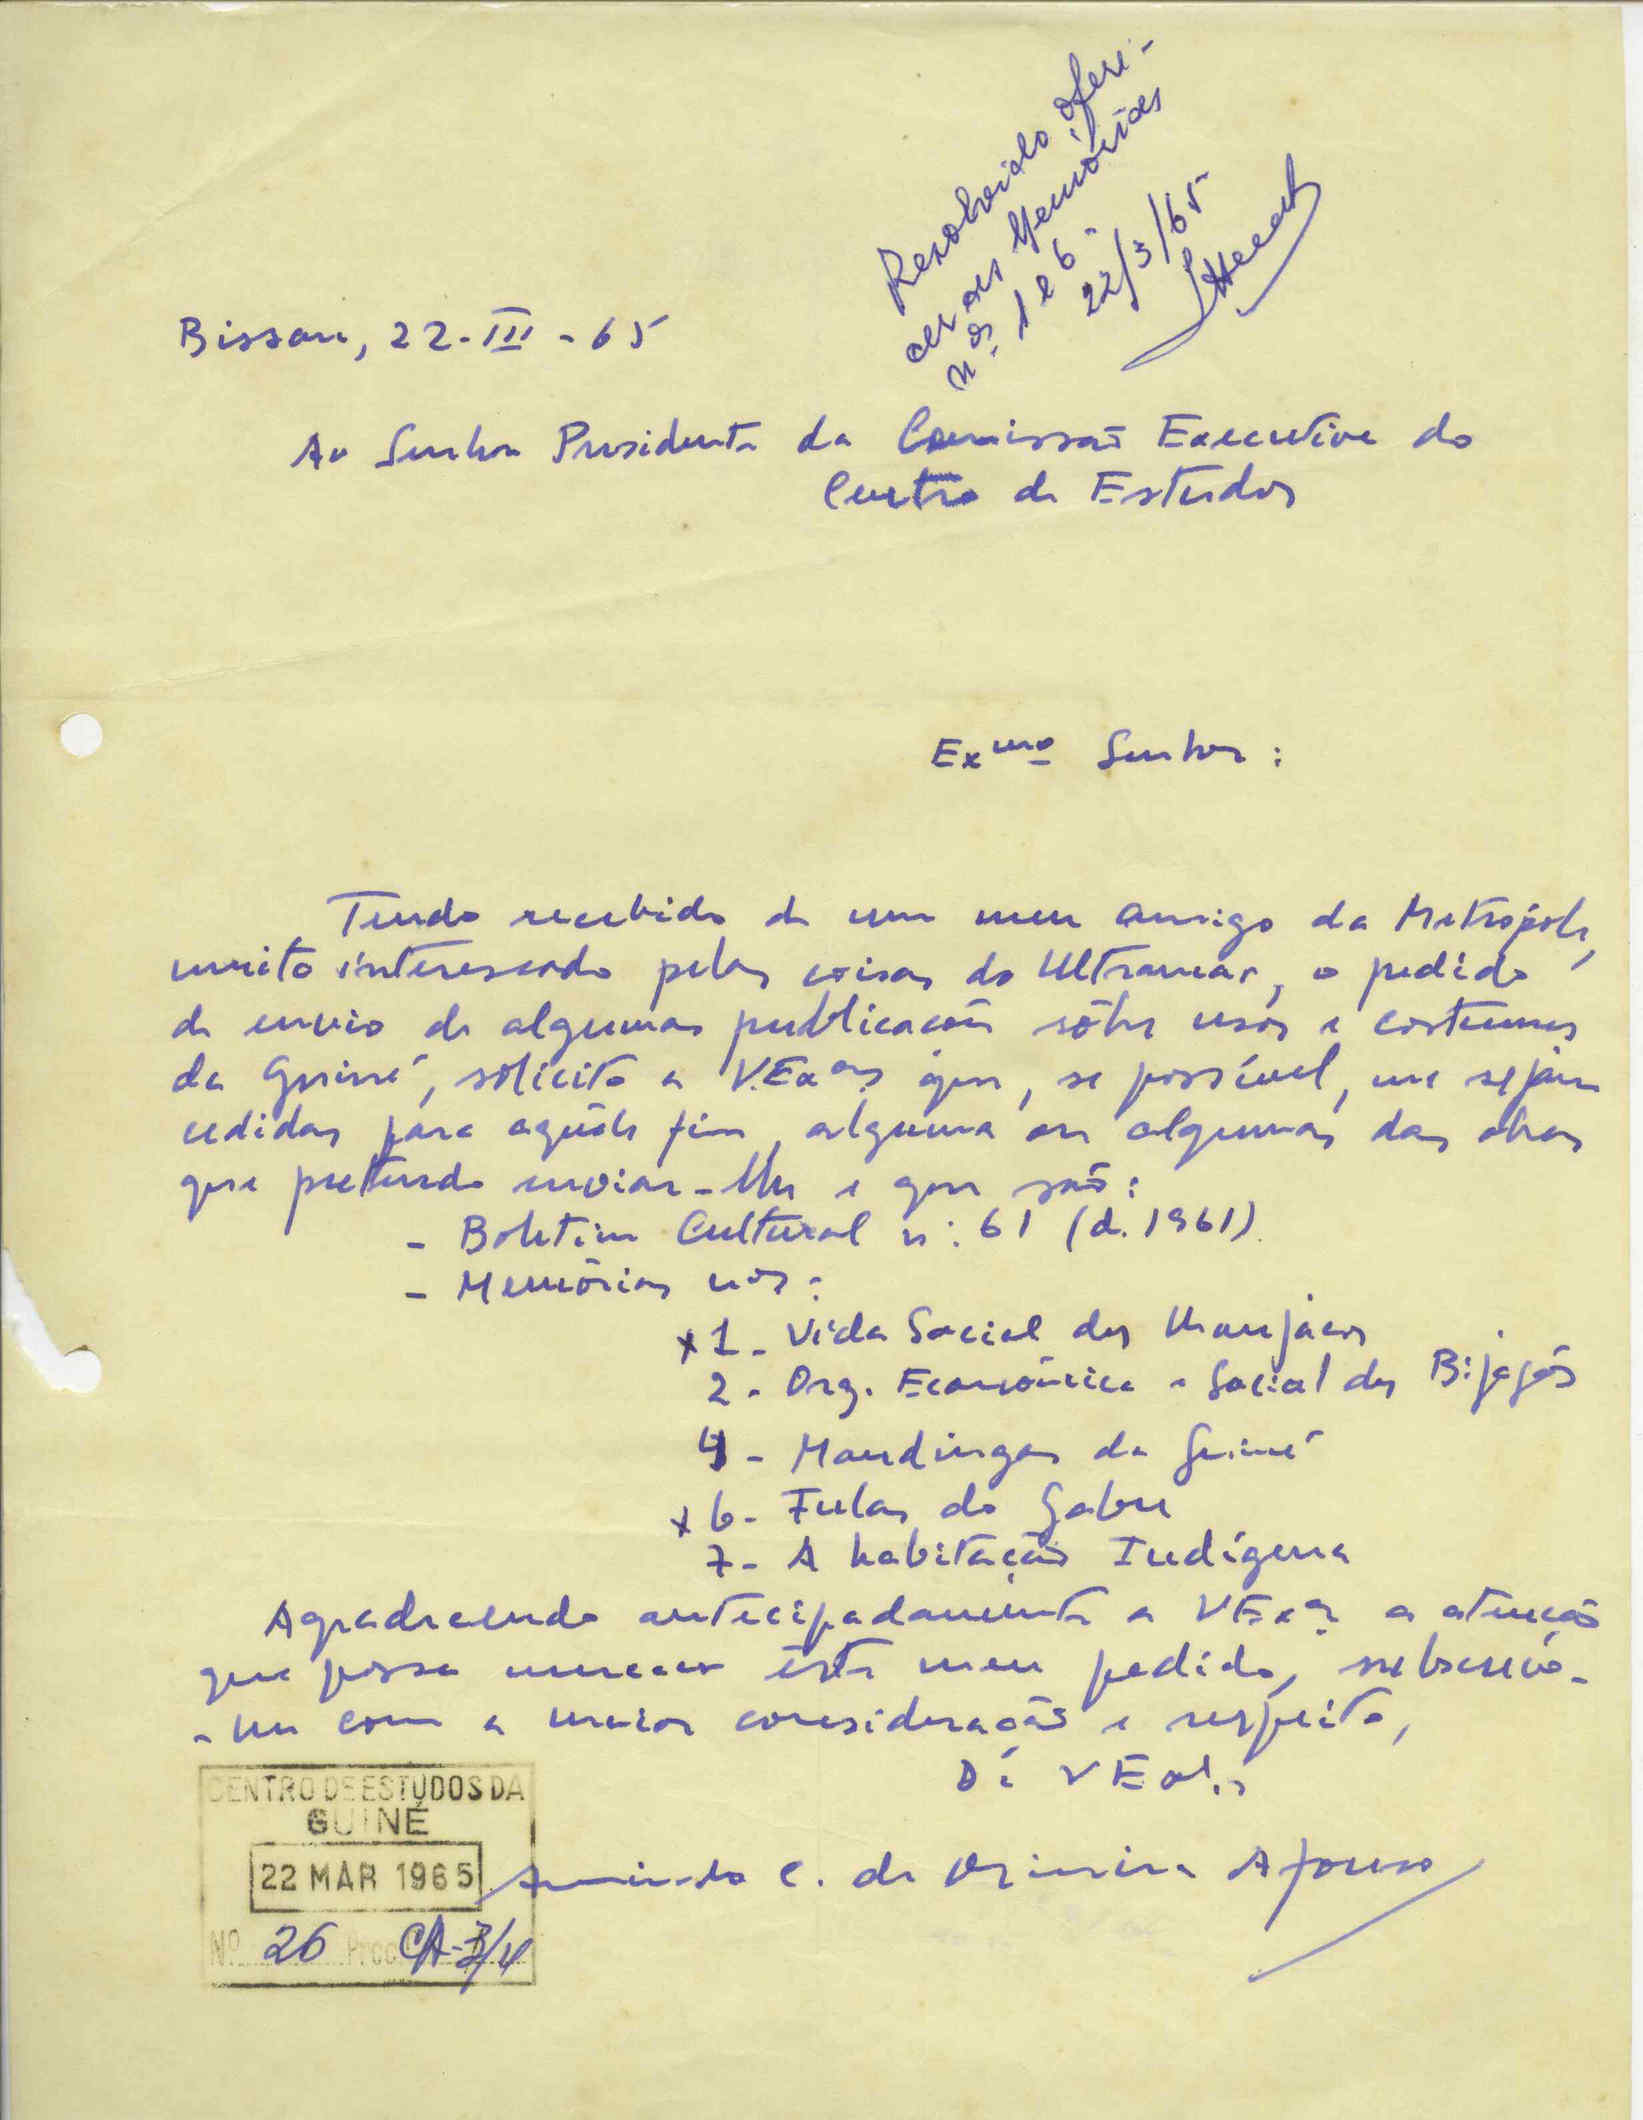 Resolvido ofere-
cer as Memórias
nos. 1 e 6.
22/3/65
Bissau, 22-III-65
Ao Senhor Presidente da Comissão Executiva do
Centro de Estudos
Exmo Senhor:
Tendo recebido de um meu amigo da Metrópole,
muito interessado pelas coisas do Ultramar, o pedido
de envio de algumas publicacões sôbre usos e costumes
da Guiné, solicito a V.Exas que, se possível, me sejam
cedidas para aquêle fim, alguma ou algumas das obras
que pretendo enviar-lhe e que são:
- Boletim Cultural nº. 61 (d. 1961).
- Memórias nos:
x 1 - Vida Social dos Manjacos
2 - Org. Económica e Social dos Bijagós
4 - Mandingas da Guiné
x 6 - Fulas do Gabu
7 - A habitação Indígena
Agradecendo antecipadamente a VExas a atenção
que possa merecer êste meu pedido, subscrevo-
-me com a maior consideração e respeito,
De VExas
CENTRO DE ESTUDOS DA
GUINÉ
22 MAR 1965
Armindo C. de Afonso
Nº 26 Proc. CA-3/4